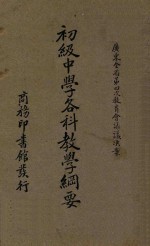 廣東全省第四次教育會議議決案
初級中學各科教學綱要
商務印書館發行